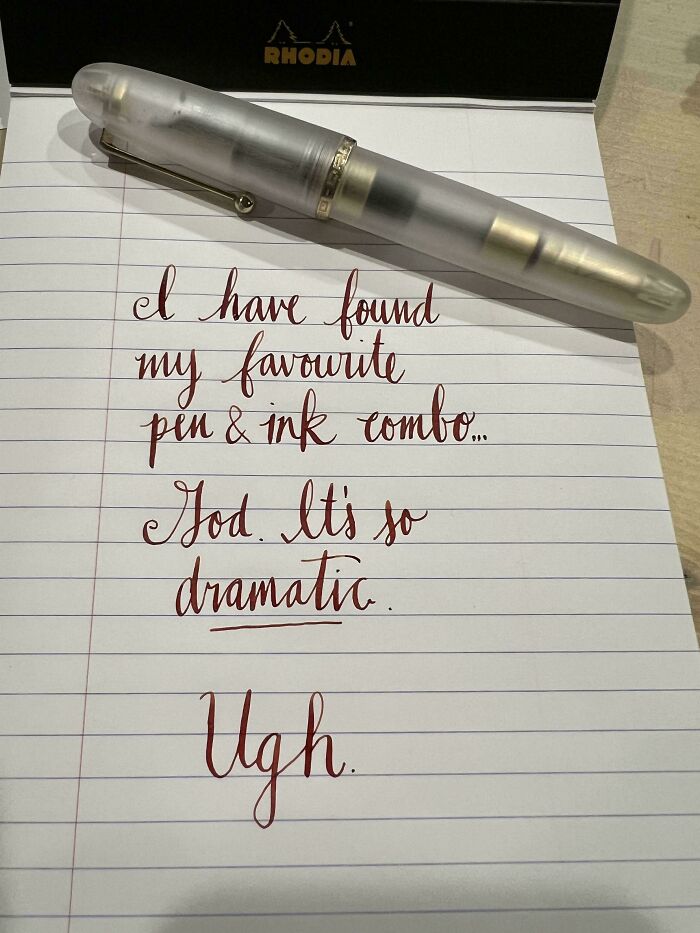 RHODIA
I have found
my favourite
pen & ink combo...
God. It's so
dramatic.
Ugh.